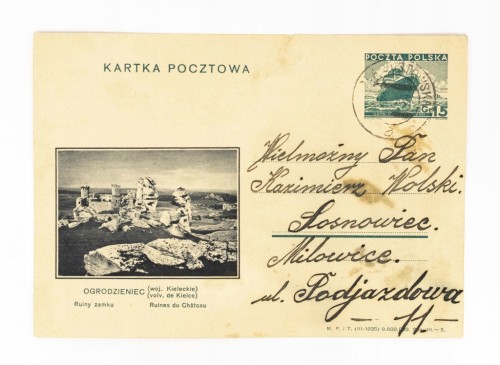 KARTKA POCZTOWA
POCZTA POLSKA
Gr. 15
Wielmożny Pan
Kazimierz Wolski.
Sosnowiec.
Milowice.
ul. Podjazdowa
- 11 -
OGRODZIENIEC (woj. Kieleckie)
(voiv. de Kielce)
Ruiny zamku Ruines du Château
M. P. i T. (III-1935)